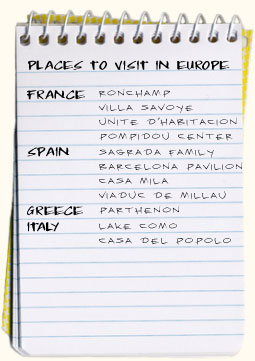 PLACES TO VISIT IN EUROPE
FRANCE RONCHAMP
VILLA SAVOYE
UNITE D'HABITACION
POMPIDOU CENTER
SPAIN SAGRADA FAMILY
BARCELONA PAVILION
CASA MILA
VIADUC DE MILLAU
GREECE PARTHENON
ITALY LAKE COMO
CASA DEL POPOLO